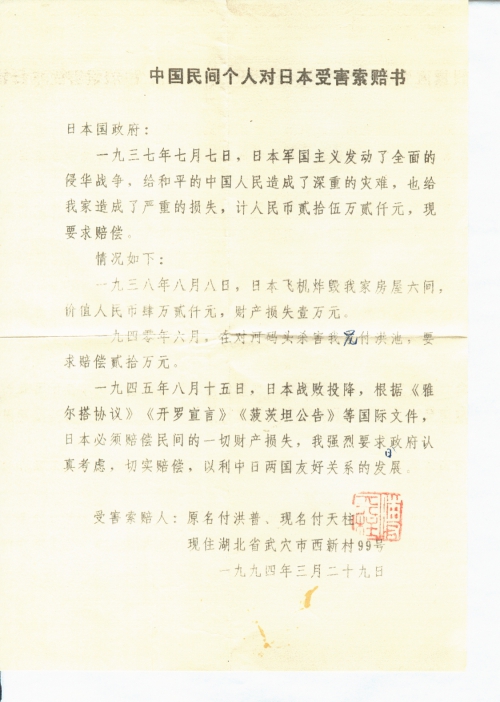 中国民间个人对日本受害索赔书
日本国政府：
一九三七年七月七日，日本军国主义发动了全面的
侵华战争，给和平的中国人民造成了深重的灾难，也给
我家造成了严重的损失，计人民币贰拾伍万贰仟元，现
要求赔偿。
情况如下：
一九三八年八月八日，日本飞机炸毁我家房屋六间，
价值人民币肆万贰仟元，财产损失壹万元。
一九四零年六月，在对河码头杀害我兄付洪池，要
求赔偿贰拾万元。
一九四五年八月十五日，日本战败投降，根据《雅
尔塔协议》《开罗宣言》《菠茨坦公告》等国际文件，
日本必须赔偿民间的一切财产损失，我强烈要求日政府认
真考虑，切实赔偿，以利中日两国友好关系的发展。
受害索赔人：原名付洪普、现名付天柱
现住湖北省武穴市西新村99号
一九九四年三月二十九日